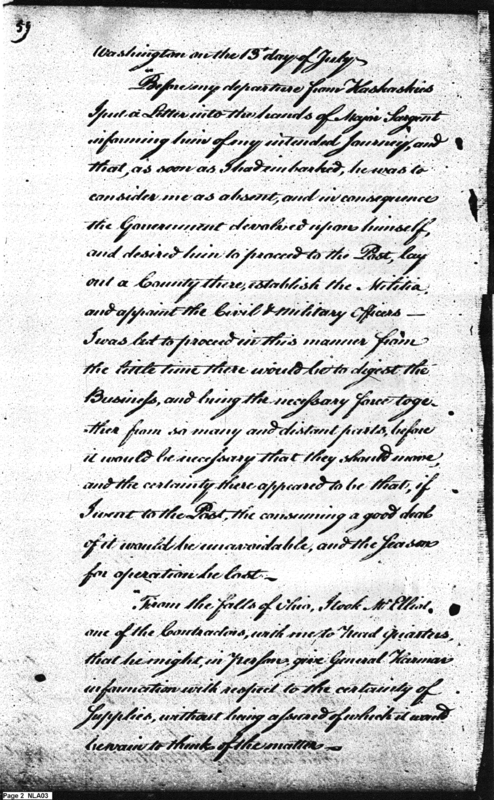 59
Washington on the 13th day of July.
"Before my departure from Kaskaskias
I put a Letter into the hands of Major Sargent
informing him of my intended Journey, and
that, as soon as I had embarked, he was to
consider me as absent, and in consequence
the Government devolved upon himself,
and desired him to proceed to the Post, lay
out a County there, establish the Militia,
and appoint the Civil & Military Officers —
I was led to proceed in this manner from
the little time there would be to digest the
Business, and bring the necessary force toge-
ther from so many and distant parts, before
it would be necessary that they should move,
and the certainty there appeared to be that, if
I went to the Post, the consuming a good deal
of it would be unavoidable, and the Season
for operation be lost —
"From the falls of Ohio, I took Mr Elliot
one of the Contractors, with me to Head Quarters,
that he might, in Person, give General Harmar
information with respect to the certainty of
Supplies, without being assured of which it would
be vain to think of the matter —
Page 2 NLA03